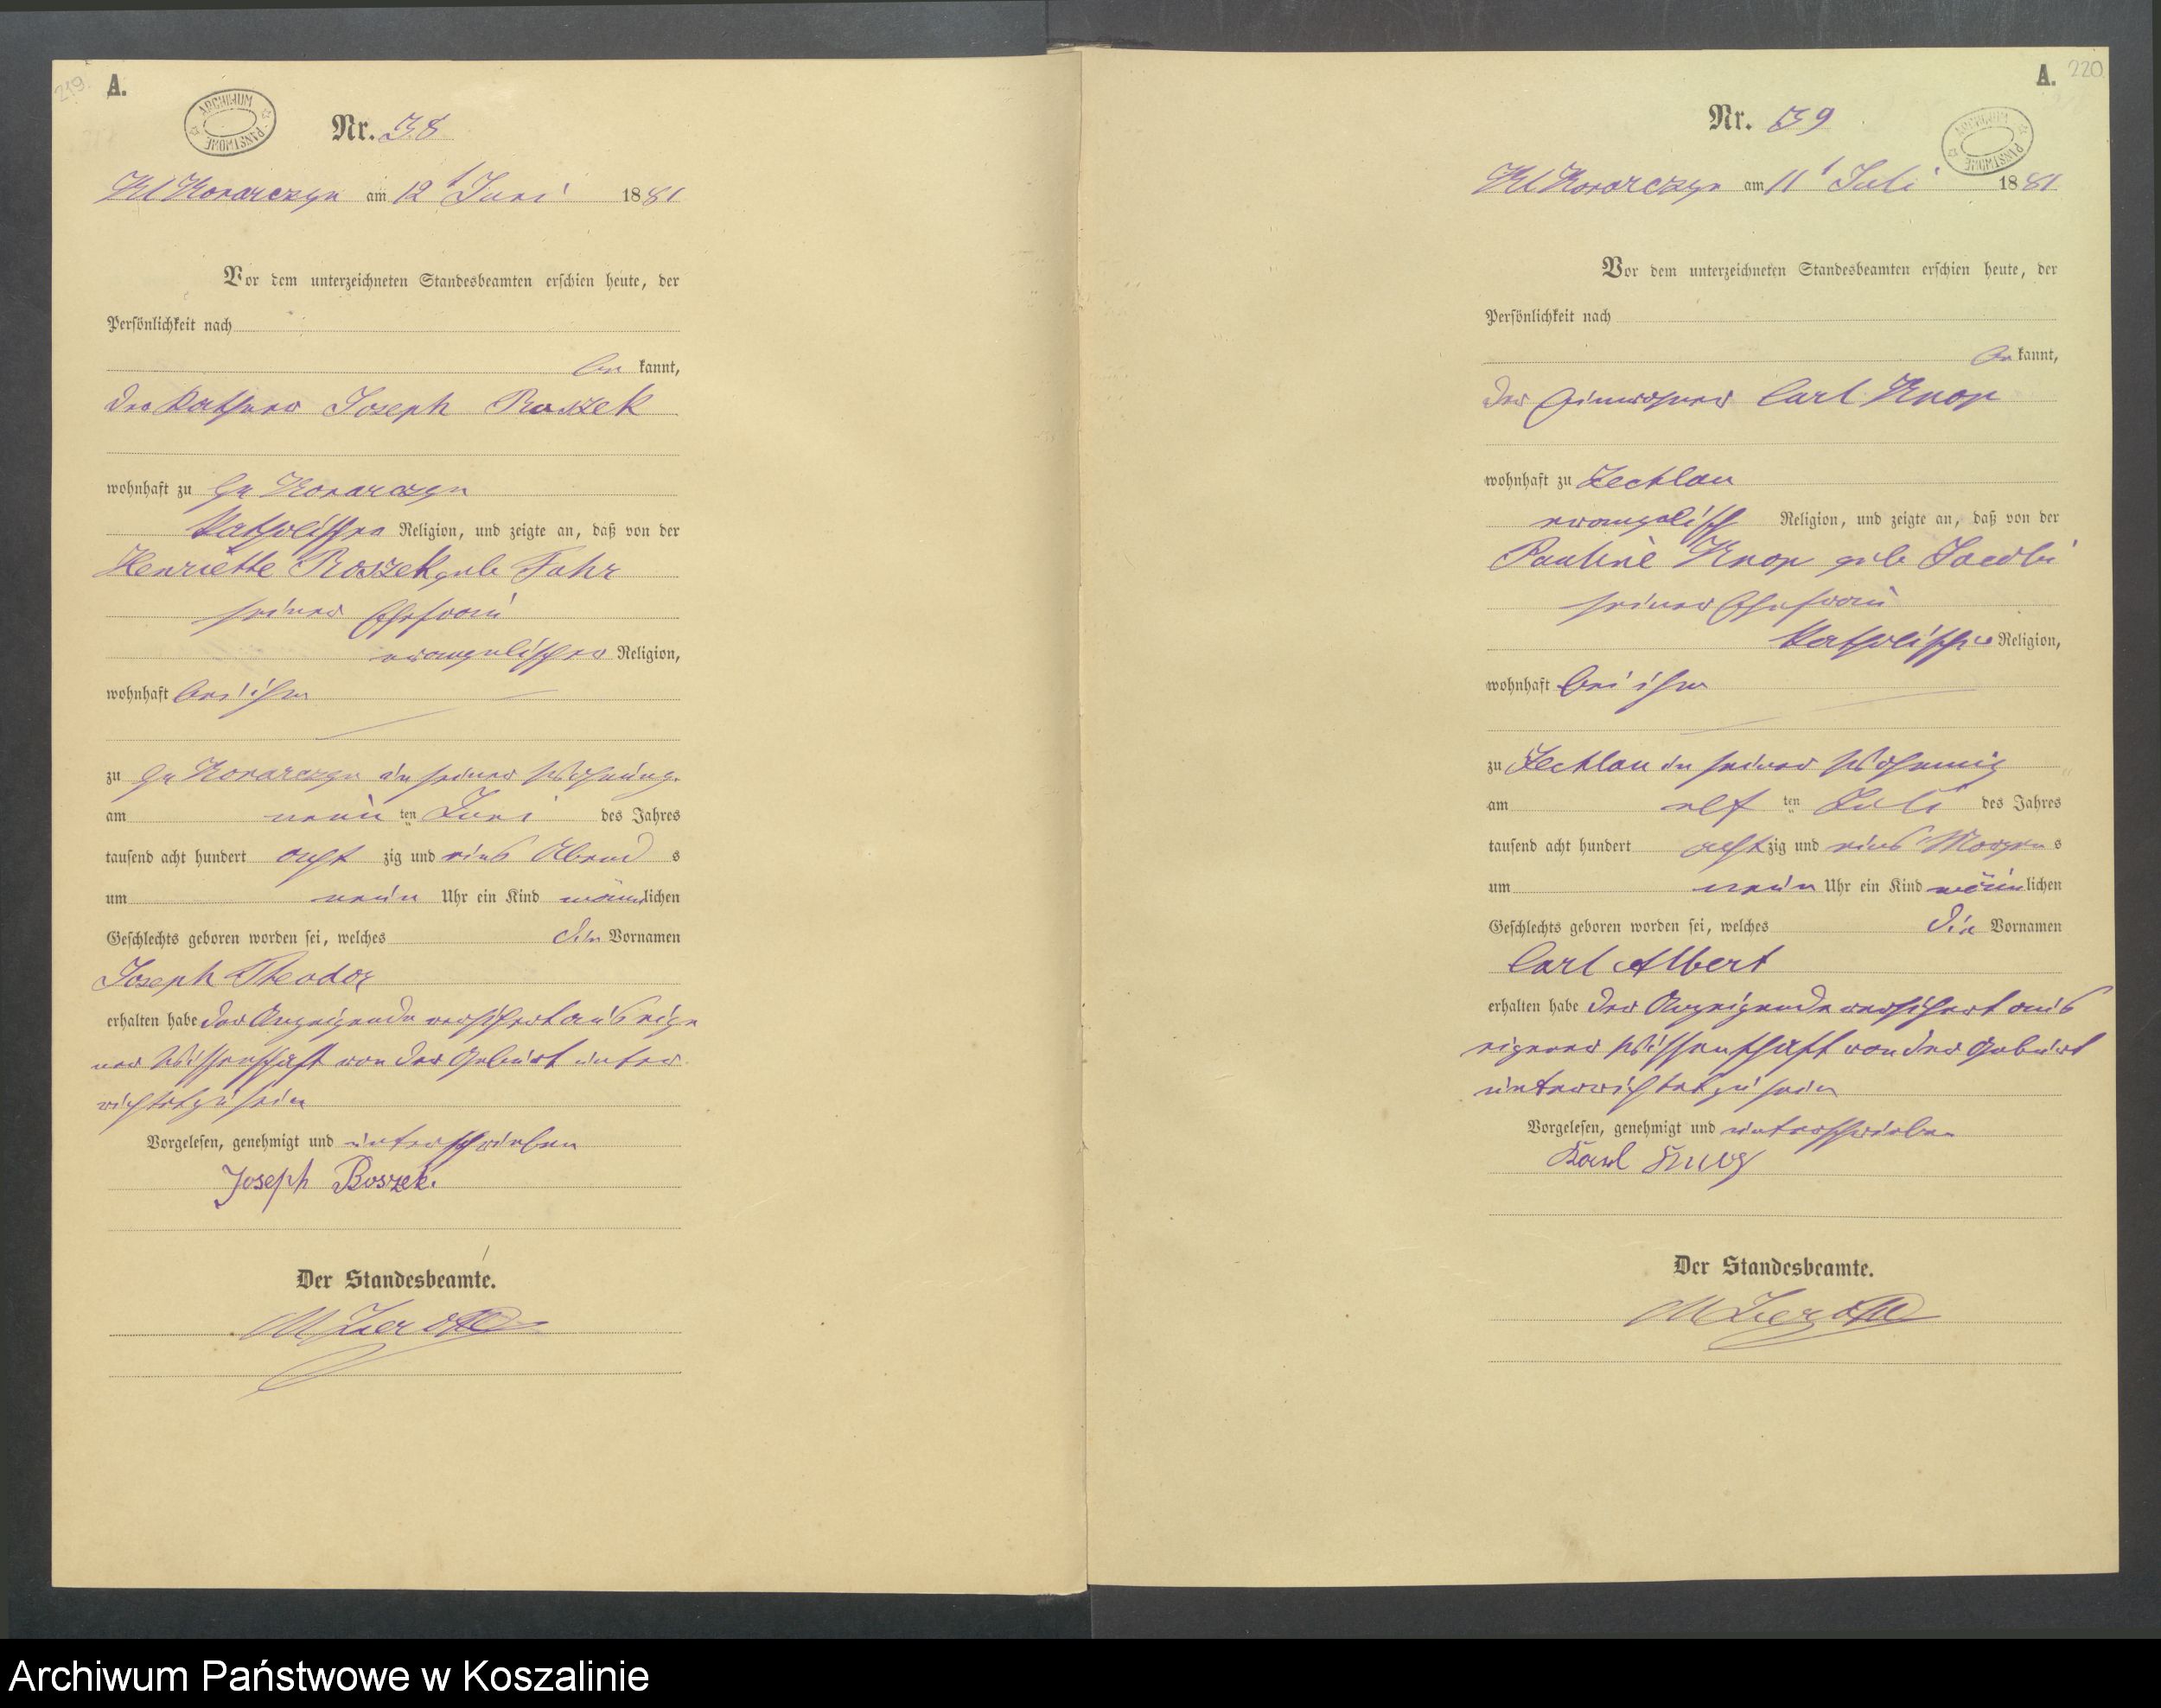 219.
A.
ARCHIWUM PAŃSTWOWE
Nr. 38
Kl Konarczyn am 12 Juni 1881
Vor dem unterzeichneten Standesbeamten erschien heute, der
Persönlichkeit nach
be kannt,
der Käthner Joseph Roszek
wohnhaft zu Gr Konarczyn
katholischer Religion, und zeigte an, daß von der
Henriette Roszek geb Fahr
seiner Ehefrau
evangelischer Religion,
wohnhaft bei ihm
zu Gr Konarczyn in seiner Wohnung
am neun ten Juni des Jahres
tausend acht hundert acht zig und eins Abend s
um neun Uhr ein Kind männlichen
Geschlechts geboren worden sei, welches die Vornamen
Joseph Theodor
erhalten habe der Anzeigende versichert aus eige
ner Wissenschaft von der Geburt unter
richtet zu sein
Vorgelesen, genehmigt und unterschrieben
Joseph Roszek.
Der Standesbeamte.
220
A.
ARCHIWUM PAŃSTWOWE
Nr. 39
Kl Konarczyn am 11 Juli 1881
Vor dem unterzeichneten Standesbeamten erschien heute, der
Persönlichkeit nach
be kannt,
der Einwohner Carl Knop
wohnhaft zu Zechlau
evangelisch Religion, und zeigte an, daß von der
Pauline Knop geb
seiner Ehefrau
katholischer Religion,
wohnhaft bei ihm
zu Zechlau in seiner Wohnung
am elf ten Juli des Jahres
tausend acht hundert acht zig und eins Morgen s
um neun Uhr ein Kind männlichen
Geschlechts geboren worden sei, welches die Vornamen
Carl Albert
erhalten habe der Anzeigende versichert aus
eigener Wissenschaft von der Geburt
unterrichtet zu sein
Vorgelesen, genehmigt und unterschrieben
Karl Knop
Der Standesbeamte.
Archiwum Państwowe w Koszalinie